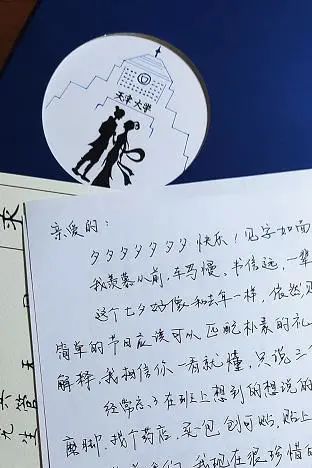 天津大学
亲爱的：
夕夕夕夕夕夕夕 快乐！见字如面
我羡慕从前，车马慢，书信远，一辈
这个七夕好像和去年一样，依然见
简单的节日应该可以匹配朴素的礼
解释，我相信你一看就懂，只说三
经常忘了在班上想到的想说的
磨脚，找个药店，买一包创可贴，贴上
我现在很珍惜的